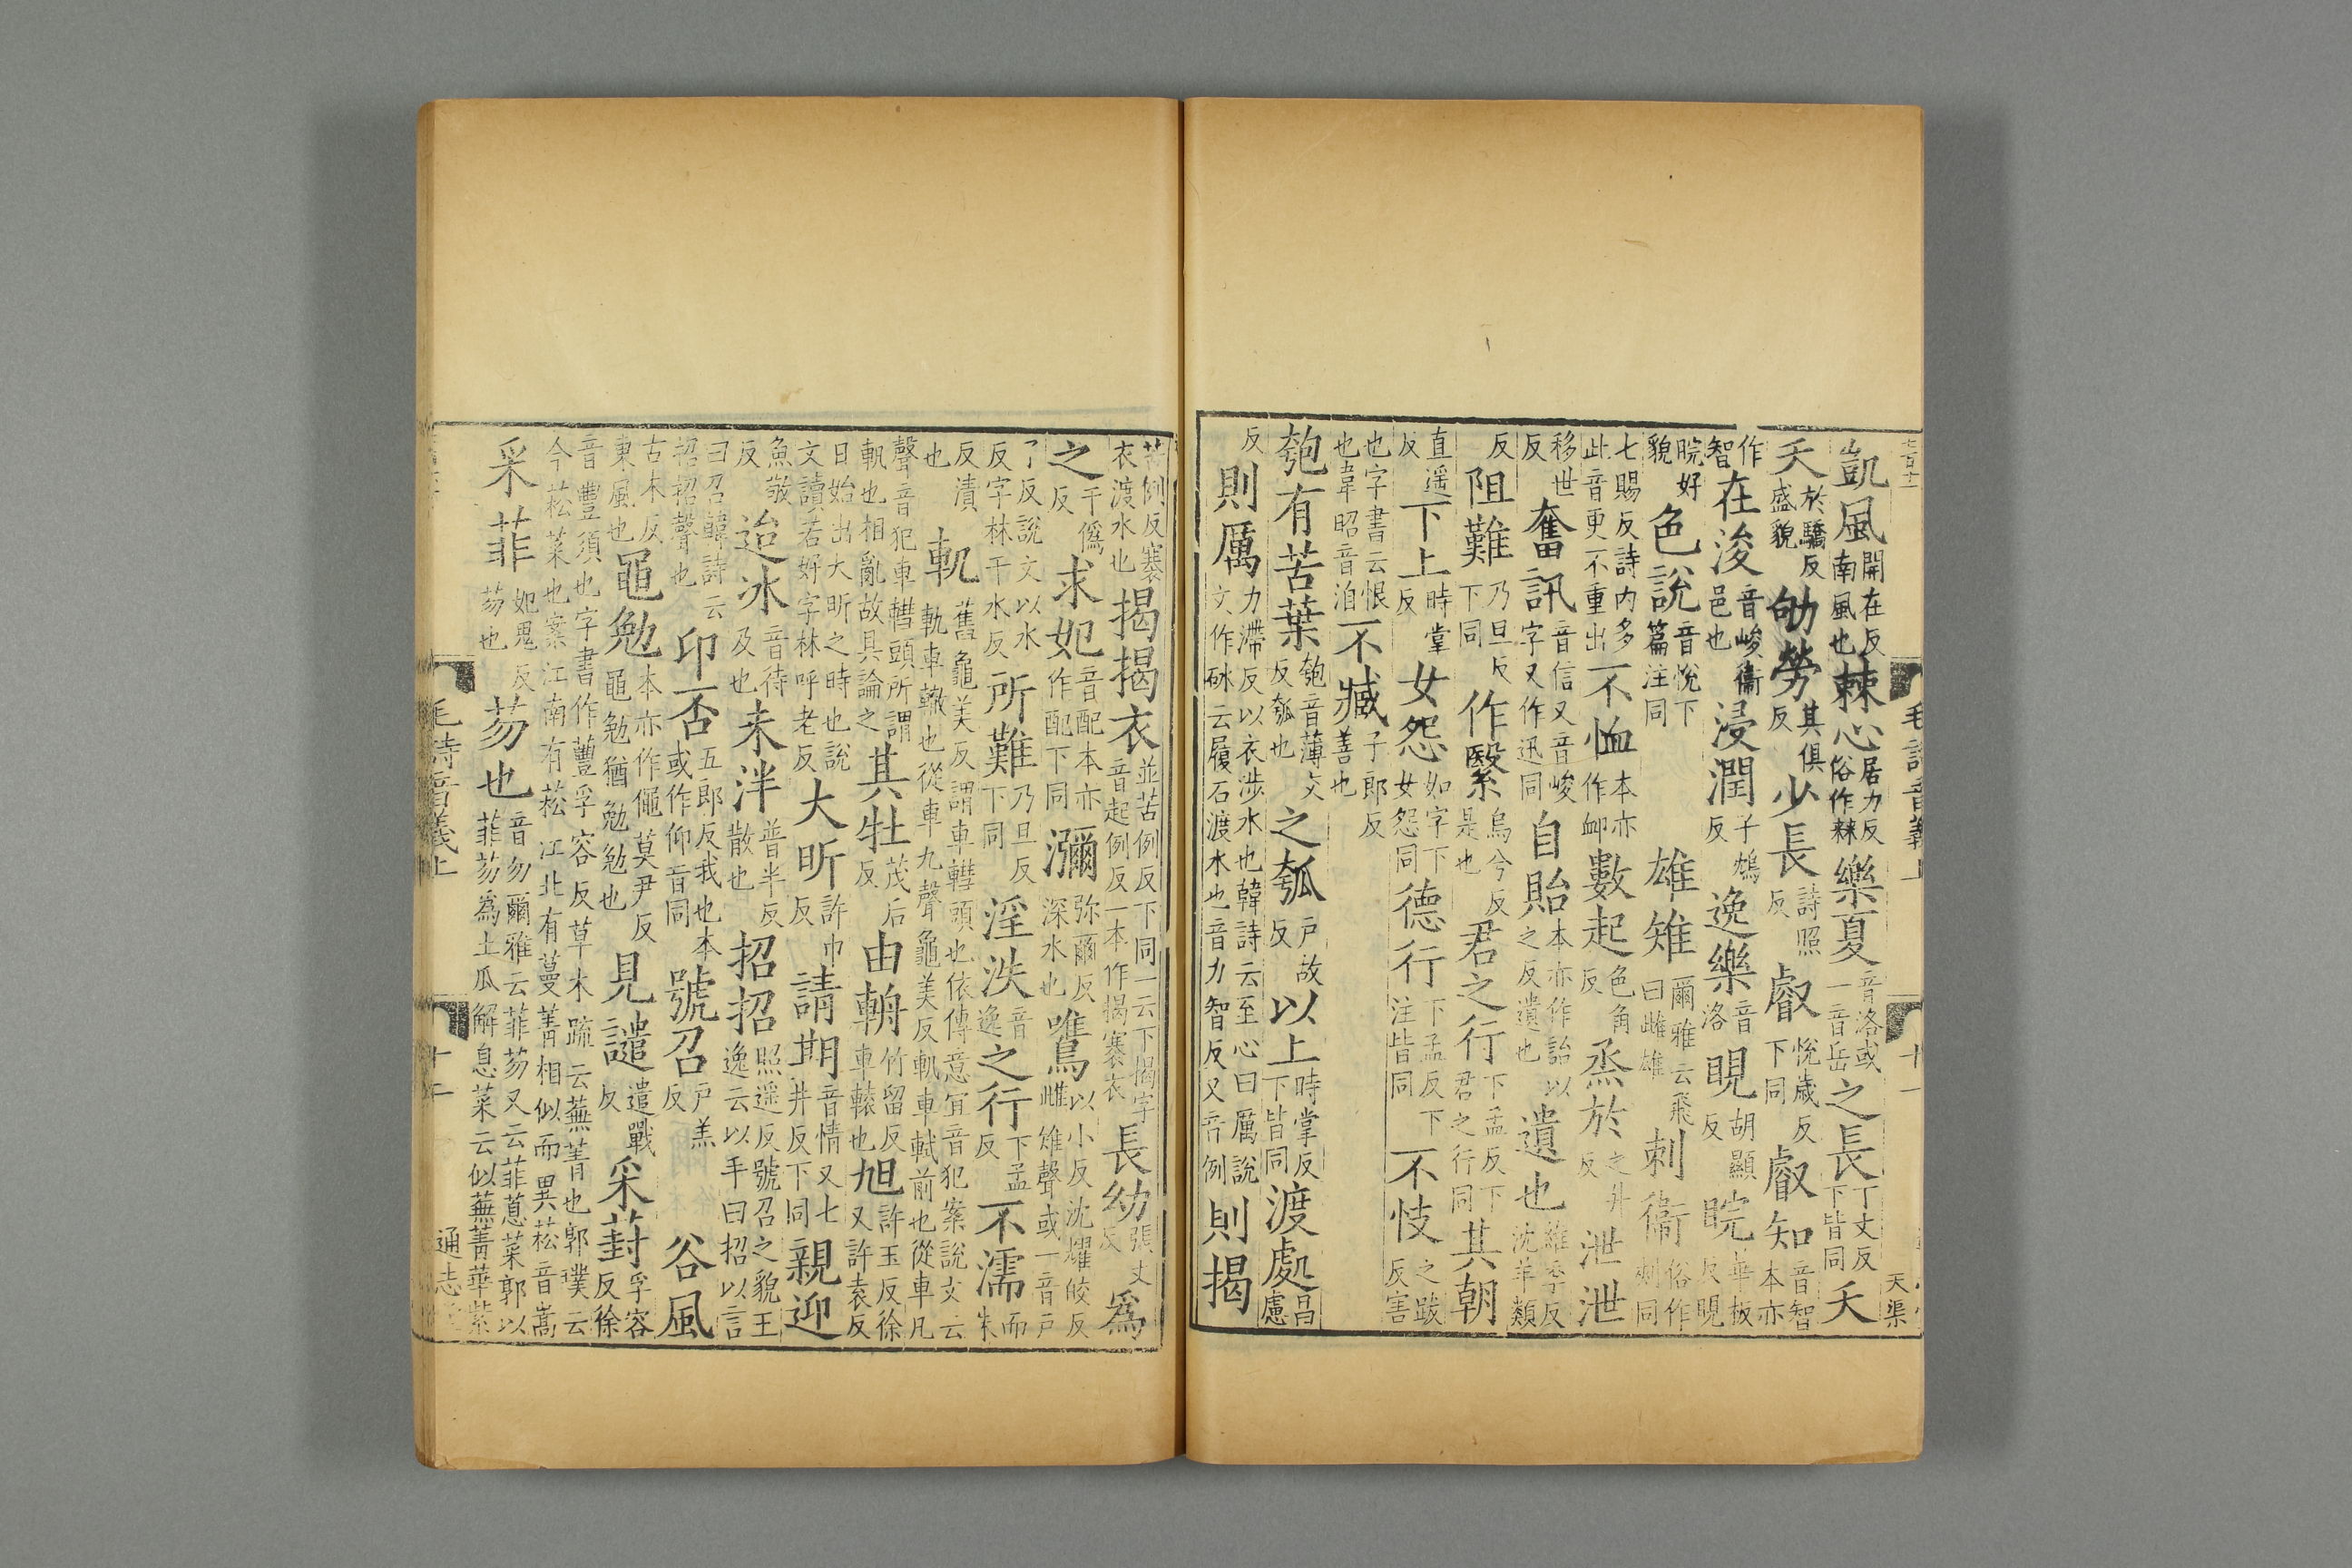 七百十一
毛詩音義上
十一
天渠
凱風開在反南風也棘心居力反俗作𣗥樂夏音洛或一音岳之長丁丈反下皆同夭
夭於驕反盛貌劬勞其俱反少長詩照反叡悅歲反下同叡知音智本亦
作智在浚音峻衞邑也浸潤子鴆反逸樂音洛睍胡顯反睆華板反睍
睆好貌色說音悅下篇注同雄雉爾雅云飛曰雌雄刺衞俗作刾同
七賜反詩内多此音更不重出不恤本亦作卹數起色角反烝於之升反泄泄
移世反奮訊音信又音峻字又作迅同自貽本亦作詒以之反遺也遺也維季反沈羊類
反阻難乃旦反下同作繄烏兮反是也君之行下孟反下君之行同其朝
直遥反下上時掌反女怨如字下女怨同德行下孟反下注皆同不忮之跂反害
也字書云恨也韋昭音洎不臧子郎反善也
匏有苦葉匏音薄交反瓠也之瓠戶故反以上時掌反下皆同渡處昌慮
反則厲力滯反以衣涉水也韓詩云至心曰厲說文作砅云履石渡水也音力智反又音例則揭
苦例反褰衣渡水也揭揭衣並苦例反下同一云下揭字音起例反一本作揭褰衣長幼張丈反爲
之于僞反求妃音配本亦作配下同瀰弥爾反深水也鷕以小反沈耀皎反雌雉聲或一音戶
了反說文以水反字林于水反所難乃旦反下同淫泆音逸之行下孟反不濡而朱
反漬也軌舊龜美反謂車轊頭也依傳意宜音犯案說文云軌車轍也從車九聲龜美反軓車軾前也從車凡
聲音犯車轊頭所謂軓也相亂故具論之其牡茂后反由輈竹留反車轅也旭許玉反徐又許袁反
日始出大昕之時也說文讀若好字林呼老反大昕許巾反請期音情又七井反下同親迎
魚敬反迨冰音待及也未泮普半反散也招招照遥反號召之貌王逸云以手曰招以言
曰召韓詩云招招聲也卬否五郎反我也本或作仰音同號召戶羔反谷風
古木反東風也黽勉本亦作僶莫尹反黽勉猶勉勉也見譴遣戰反采葑孚容反徐
音豐須也字書作蘴孚容反草木疏云蕪菁也郭璞云今菘菜也案江南有菘江北有蔓菁相似而異菘音嵩
采菲妃鬼反芴也芴也音勿爾雅云菲芴又云菲蒠菜郭以菲芴爲土瓜解息菜云似蕪菁華紫
毛詩音義上
通志